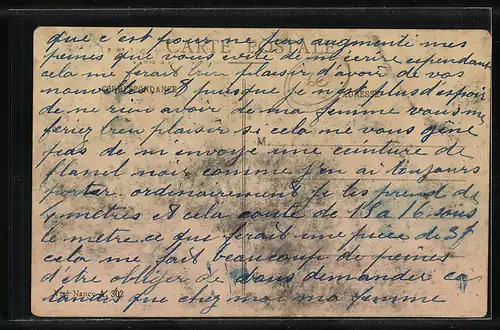 que c'est pour ne pas augmenté mes
CARTE POSTALE
peines que vous evité de m'ecrire cependant
cela me ferait bien plaisir d'avoir de vos
CORRESPONDANCE
ADRESSE
nouvelle puisque je n'est plus d'espoir
de rien avoir de ma femme vous me
feriez bien plaisir si cela ne vous gene
M
pas de m'envoye une ceinture de
flanel noir comme j'en ai toujours
porter ordinairement je les prend de
4 metres et cela coute de 15 a 16 sous
le metre ce qui ferait une piece de 3f
cela me fait beaucoup de peines
d'être obliger de vous demander ca
tandis que chez moi ma femme
Nancy 302